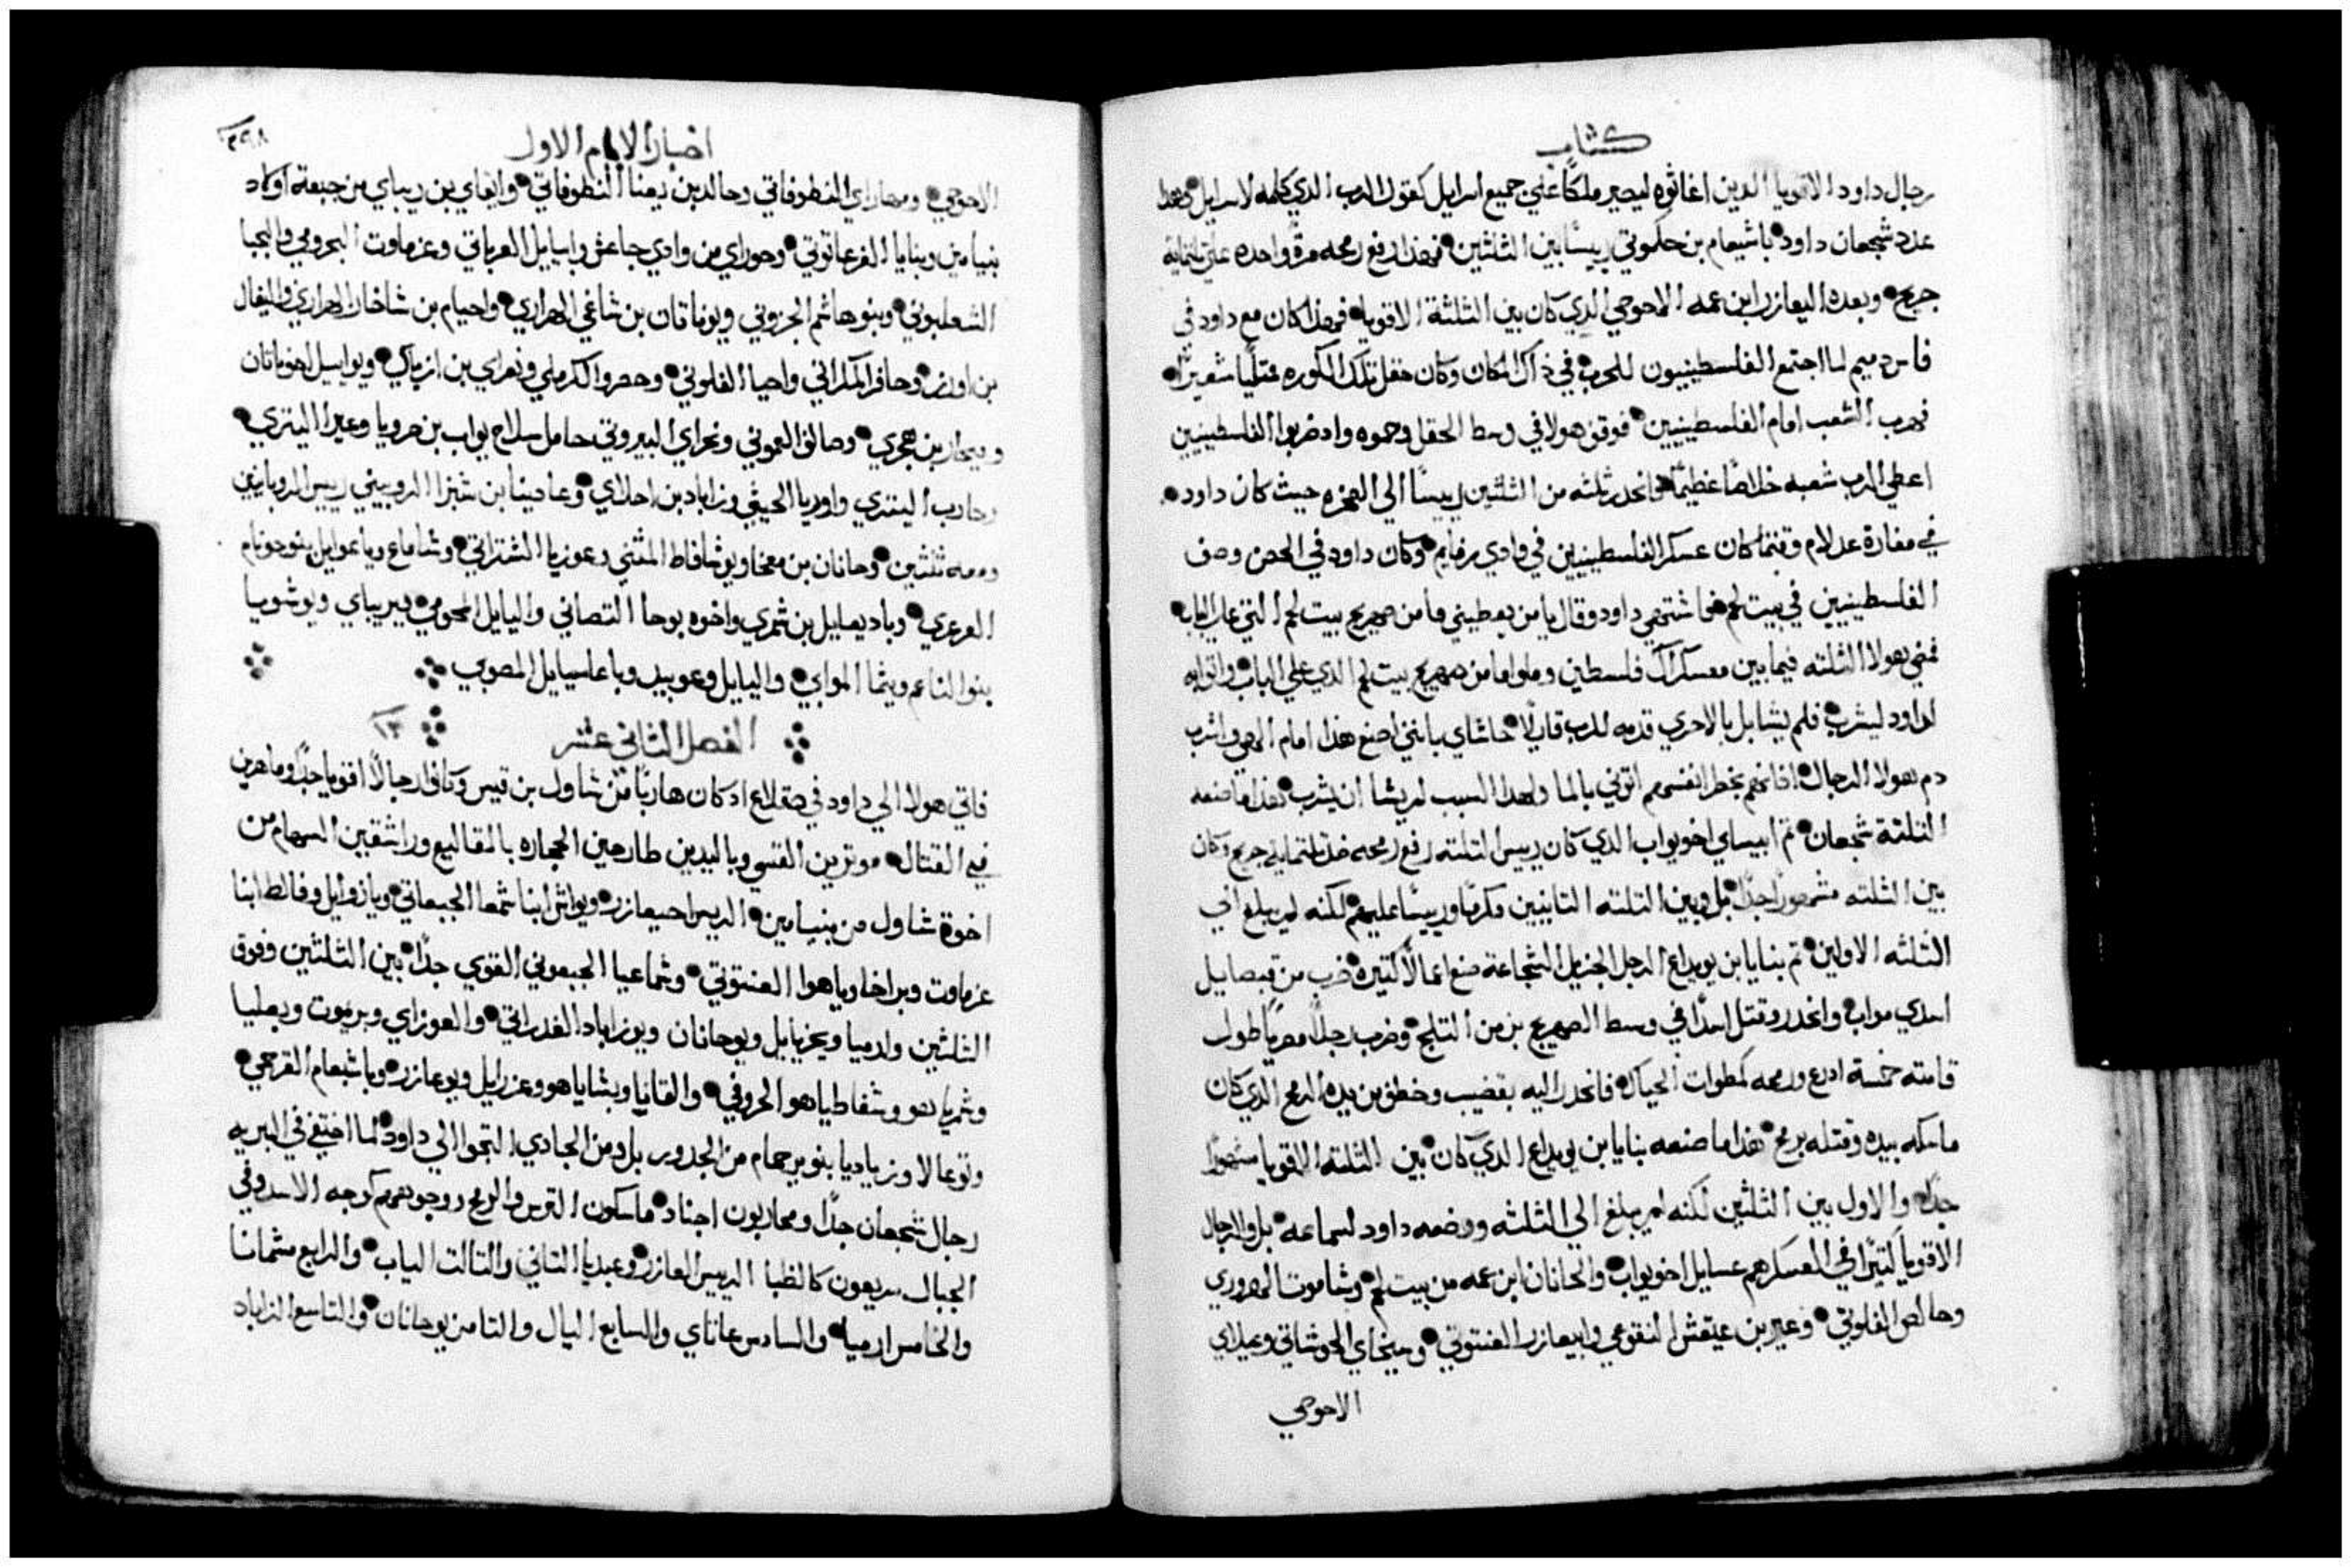 كتاب
رجال داود الاقويا الدين اغاثوه ليصير ملكًا علي جميع اسرايل كقول الرب الدي كلمه لاسرايل وهدا
عدد شجعان داود باشيعام بن حكموني رييسًا بين الثلثين فهدا رفع رمحه مرةً واحده علي تلتماية
جريح وبعده اليعازر ابن عمه الاحوحي الدي كان بين الثلثة الاقويا فهدا كان مع داود في
فاس دميم لما اجتمع الفلسطينيون للحرب في داك المكان وكان حقل تلك الكوره ممتليًا شعيرًا
فهرب الشعب امام الفلسطينيين فوقف هولا في وسط الحقل وحموه واد ضربوا الفلسطينيين
اعطي الرب شعبه خلاصًا عظيمًا فانحدر ثلثه من الثلثين رييسًا الي الصخره حيث كان داود
في مغارة عدلام وقتما كان عسكر الفلسطينيين في وادي رفايم وكان داود في الحصن وصف
الفلسطينيين في بيت لحم فاشتهي داود وقال يا من يعطيني ما من صهريج بيت لحم التي علي الباب
فمضي هولا الثلثه فيما بين معسكر فلسطين وملوا ما من صهريج بيت لحم الدي علي الباب واتوا به
لداود ليشرب فلم يشا بل بالاحري قدمه للرب قايلًا حاشاي باني اصنع هدا امام الهي واشرب
دم هولا الرجال فانهم بخطر انفسهم اتوني بالما ولهدا السبب لم يشا ان يشرب فهدا ما صنعه
الثلثة شجعان تم ابيساي اخو يواب الدي كان رييس التلته رفع رمحه ضد تلتماية جريح وكان
بين الثلثه مشهورًا جدًا بل وبين التلته التانيين مكرمًا ورييسًا عليهم لكنه لم يبلغ الي
الثلثه الاولين تم بنايا ابن يويداع الرجل الجزيل الشجاعة صنع اعمالًا كتيره ضرب من قبصاييل
اسدي مواب وانحدر وقتل اسدًا في وسط الصهريج بزمن التلج وضرب رجلًا مصريًا طول
قامته خمسة ادرع ورمحه كمطوات الحياك فانحدر اليه بقضيب وخطف من يده الرمح الدي كان
ماسكه بيده وقتله برمحه هدا ما صنعه بنايا بن يويداع الدي كان بين الثلثة الاقويا مشهورًا
جدًا والاول بين الثلثين لكنه لم يبلغ الي الثلثه ووضعه داود لسماعه بل والرجال
الاقويا كتيرًا في العسكر هم عسايل اخو يواب والحانان ابن عمه من بيت لحم وشاموت الهروري
وحالص الفلوني وعير بن عيقش النقوعي وابيعازر العنتوتي وسبخاي الحوشاتي وعيلاي
الاحوحي
اخبار الايام الاول
٣٩٨
الاحوحي ومهاراي النطوفاتي وحالد بن بعنا النطوفاتي وايثاي بن ريباي من جبعة اولاد
بنيامين وبنايا الفرعاتوني وحوراي من وادي جاعش وابياييل العرباتي وعزماوت البحرومي واليحبا
الشعلبوني وبنو هاشم الجزوني ويوناتان بن شاغي الهراري واحيام بن شاخار الهراري واليفال
بن اور وحافر المكراتي واحيا الفلوني وحصروا الكرملي ونعراي بن ازباي ويواييل اخو ناتان
ومبحار بن هجري وصالق العموني ونحراي البيروتي حامل سلاح يواب بن صرويا وعيرا اليتري
وجارب اليتري واوريا الحيثي وزاباد بن احلاي وعادينا بن شيزا الروبيني رييس الروبانيين
ومعه ثلثين وحانان بن معخا ويوشافاط المثني وعوزيا الشتراتي وشاماع ويعواييل بنو حوثام
العرعري وياديعاييل بن شمري واخوه يوحا التصاني وايليايل المحومي ويريباي ويوشويا
بنو الناعم ويثما الموابي واليايل وعوبيد وياعاسيايل المصوبي
الفصل الثاني عشر ١٢
فاتي هولا الي داود في صقلاع اد كان هاربًا من شاول بن قيس وكانوا رجالًا اقويا جدًا وماهرين
في القتال موترين القسي وباليدين طارحين الحجاره بالمقاليع وراشقين السهام من
اخوة شاول من بنيامين الرييس احيعازر ويواش ابنا شمعا الجبعاتي ويازوايل وفالط ابنا
عزماوت وبراخا وياهوا العنتوتي وشماعيا الجبعوني القوي جدًا بين الثلثين وفوق
الثلثين وارميا ويحزيايل ويوحانان ويوزاباد الغدراتي والعوزاي ويريموت وبعليا
وشمرياهو وشفاطياهو الحروفي والقانا ويشاياهو وعزرايل ويوعازر وياشبعام القرحي
ويوعالا وزباديا بنو يرحام من الجدور بل ومن الجادي التجوا الي داود لما اختفي في البريه
رجال شجعان جدًا ومحاربون اجناد ماسكون الترس والرمح ووجوههم كوجه الاسد وفي
الجبال سريعون كالظبا الرييس العازر وعبديا التاني والتالت الياب والرابع مشمانا
والخامس ارميا والسادس عاتاي والسابع اليال والتامن يوحانان والتاسع الزاباد